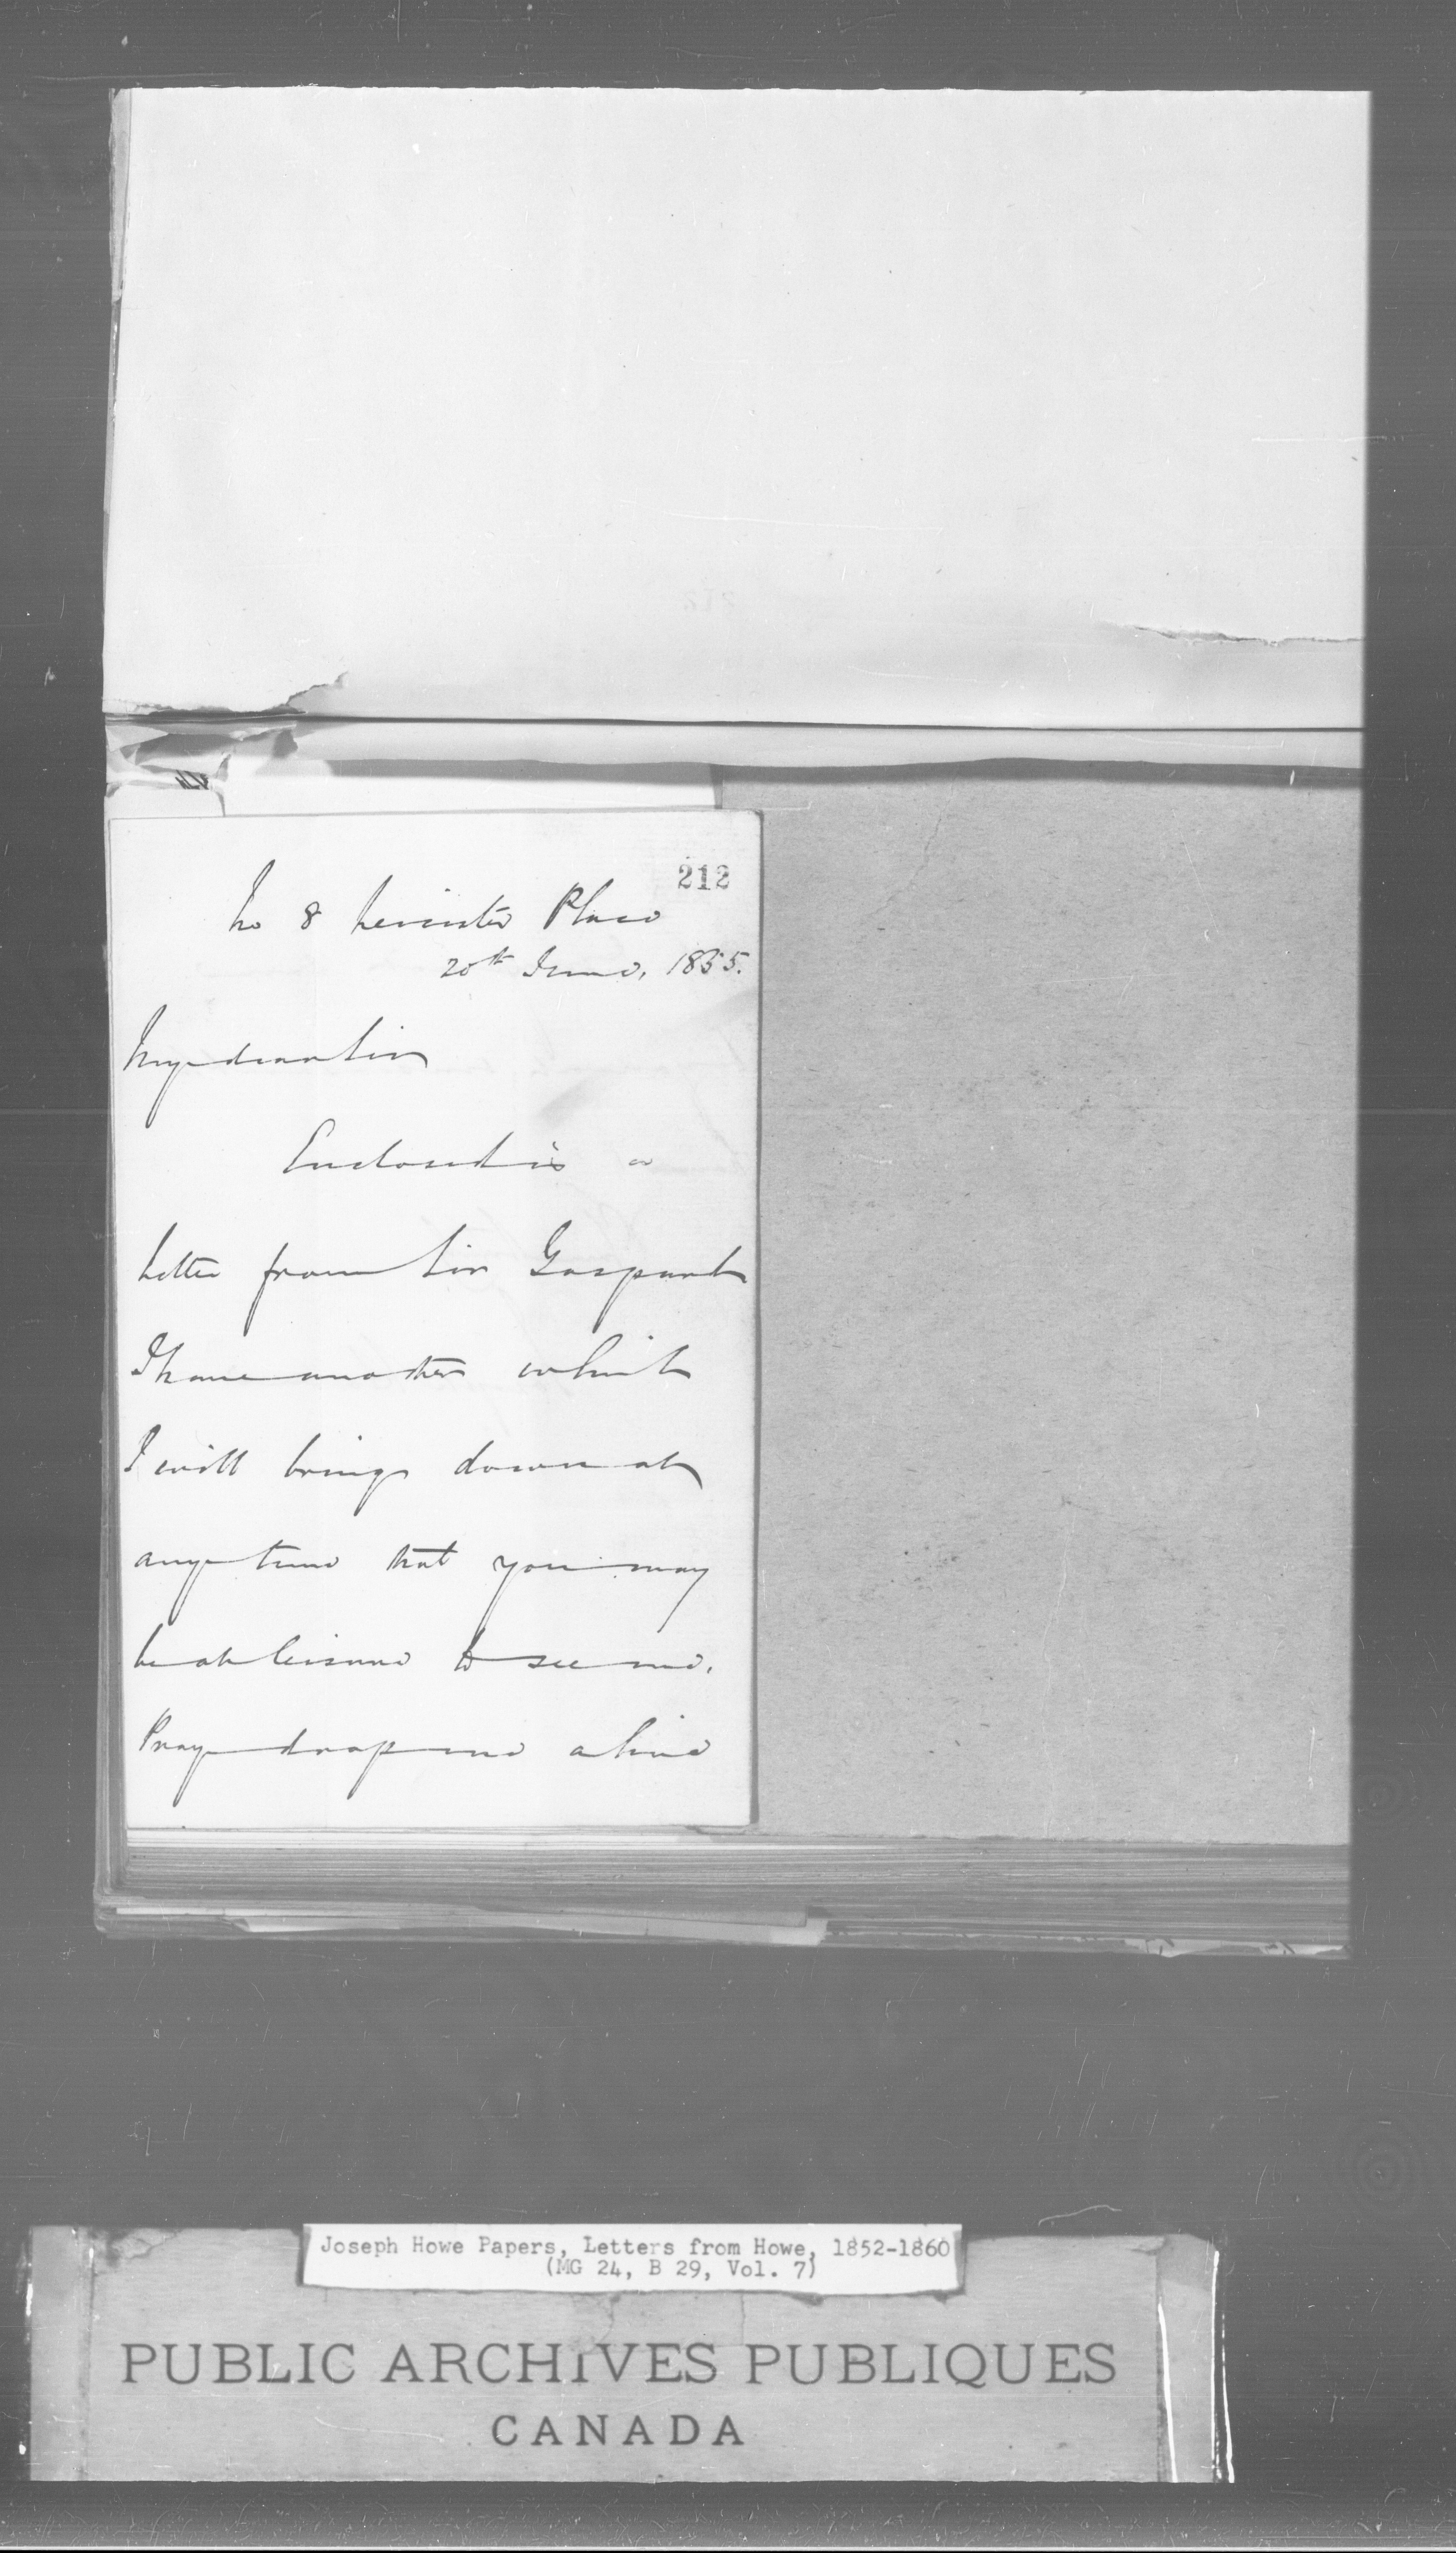 212
No 8 Leicester Place
20th June, 1855.
My dear Sir
Enclosed is a
Letter from Sir Gaspard
I have another which
I will bring down at
any time that you may
be at leisure to see me.
Pray drop me a line
Joseph Howe Papers, Letters from Howe, 1852-1860
(MG 24, B 29, Vol. 7)
PUBLIC ARCHIVES PUBLIQUES
CANADA